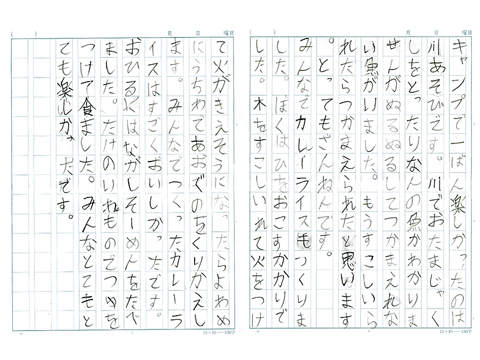 キャンプで一ばん楽しかったのは
川あそびです。川でおたまじゃく
しをとったりなんの魚かわかりま
せんがぬるぬるしてつかまえれな
い魚がいました。もうすこしいら
れたらつかまえられたと思います
。とってもざんねんです。
みんなでカレーライスもつくりま
した。ぼくはひをおこすかかりで
した。木をすこしいれて火をつけ
て火がきえそうになったらよわめ
にうちわであおぐのをくりかえし
ます。みんなでつくったカレーラ
イスはすごくおいしかったです。
おひるにはながしそーめんをたべ
ました。たけのいれものでつゆを
つけて食ました。みんなとてもと
ても楽しかったです。